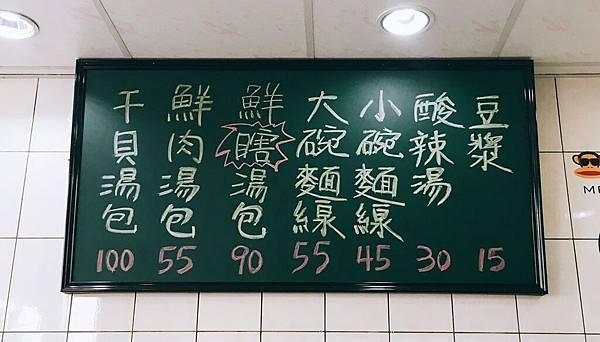 豆漿 15
酸辣湯 30
小碗麵線 45
大碗麵線 55
鮮瞎湯包 90
鮮肉湯包 55
干貝湯包 100